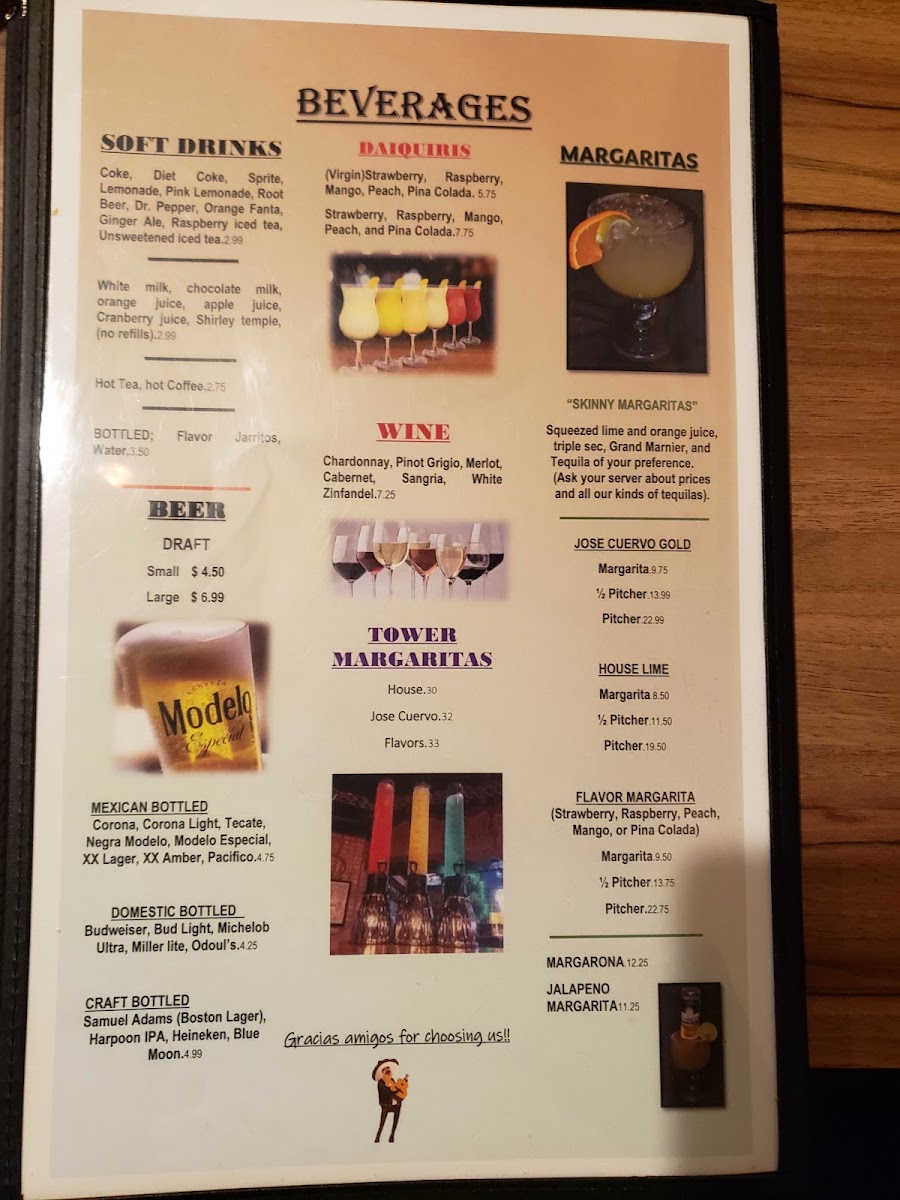 BEVERAGES
SOFT DRINKS
Coke, Diet Coke, Sprite,
Lemonade, Pink Lemonade, Root
Beer, Dr. Pepper, Orange Fanta,
Ginger Ale, Raspberry iced tea,
Unsweetened iced tea.2.99
White milk, chocolate milk,
orange juice, apple juice,
Cranberry juice, Shirley temple,
(no refills).2.99
Hot Tea, hot Coffee.2.75
BOTTLED; Flavor Jarritos,
Water.3.50
BEER
DRAFT
Small $ 4.50
Large $ 6.99
CERVEZA
Modelo
Especial
MEXICAN BOTTLED
Corona, Corona Light, Tecate,
Negra Modelo, Modelo Especial,
XX Lager, XX Amber, Pacifico.4.75
DOMESTIC BOTTLED
Budweiser, Bud Light, Michelob
Ultra, Miller lite, Odoul's.4.25
CRAFT BOTTLED
Samuel Adams (Boston Lager),
Harpoon IPA, Heineken, Blue
Moon.4.99
DAIQUIRIS
(Virgin)Strawberry, Raspberry,
Mango, Peach, Pina Colada. 5.75
Strawberry, Raspberry, Mango,
Peach, and Pina Colada.7.75
WINE
Chardonnay, Pinot Grigio, Merlot,
Cabernet, Sangria, White
Zinfandel.7.25
TOWER
MARGARITAS
House.30
Jose Cuervo.32
Flavors.33
Gracias amigos for choosing us!!
MARGARITAS
"SKINNY MARGARITAS"
Squeezed lime and orange juice,
triple sec, Grand Marnier, and
Tequila of your preference.
(Ask your server about prices
and all our kinds of tequilas).
JOSE CUERVO GOLD
Margarita.9.75
½ Pitcher.13.99
Pitcher.22.99
HOUSE LIME
Margarita.8.50
½ Pitcher.11.50
Pitcher.19.50
FLAVOR MARGARITA
(Strawberry, Raspberry, Peach,
Mango, or Pina Colada)
Margarita.9.50
½ Pitcher.13.75
Pitcher.22.75
MARGARONA.12.25
JALAPENO
MARGARITA11.25